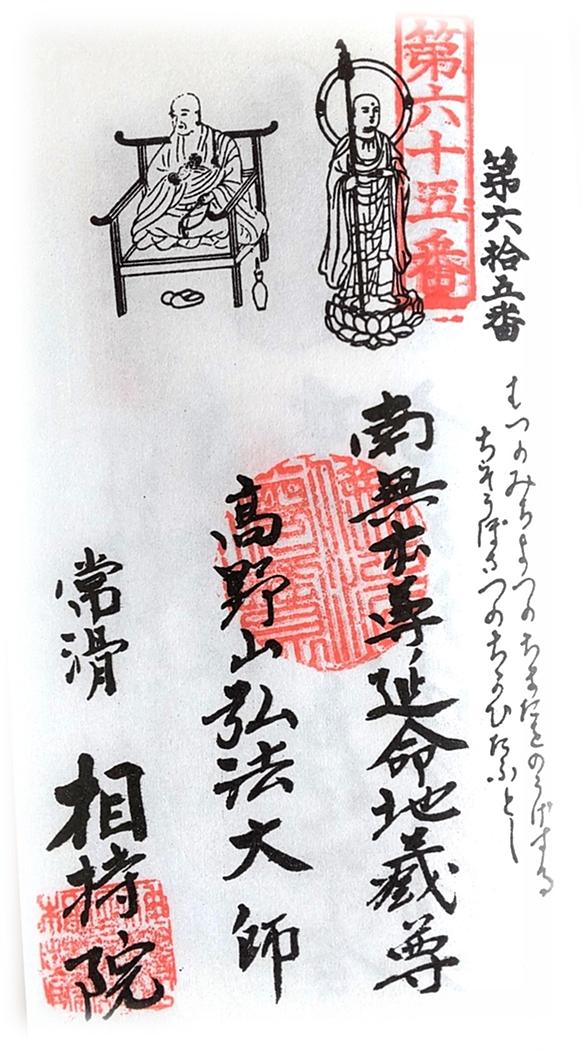 第六拾五番
むつのみちよつのちまたをのうげする
ちそうぼさつのちかひたふとし
第六十五番
南無本尊延命地蔵尊
高野山弘法大師
常滑
相持院